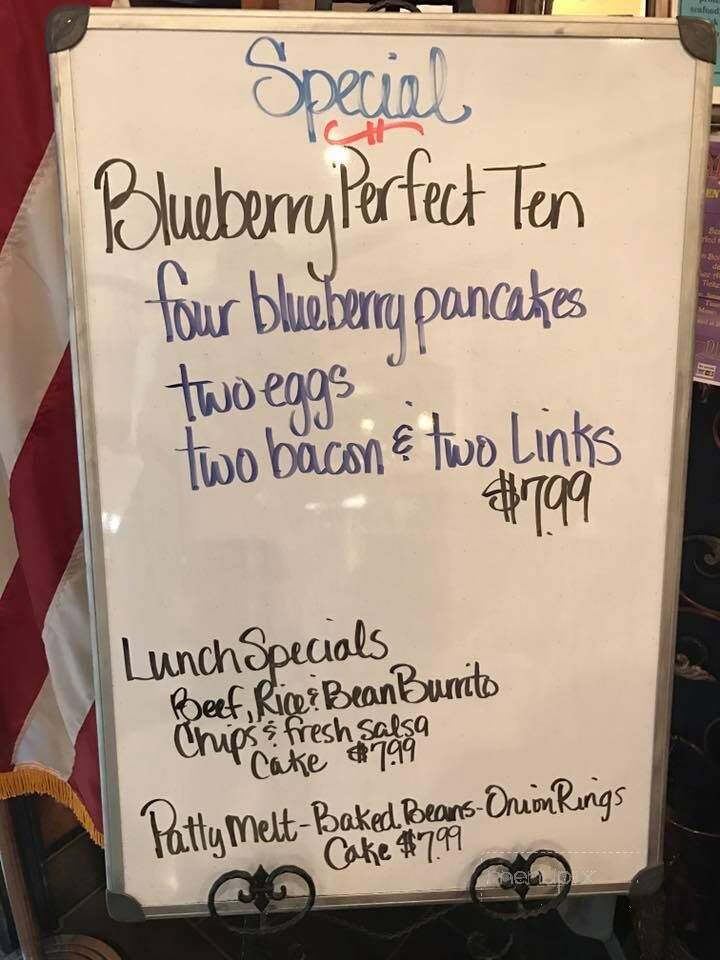 Special
Blueberry Perfect Ten
four blueberry pancakes
two eggs
two bacon & two Links
$7.99
Lunch Specials
Beef, Rice & Bean Burrito
Chips & fresh salsa
Cake $7.99
Patty Melt - Baked Beans - Onion Rings
Cake $7.99
menupix